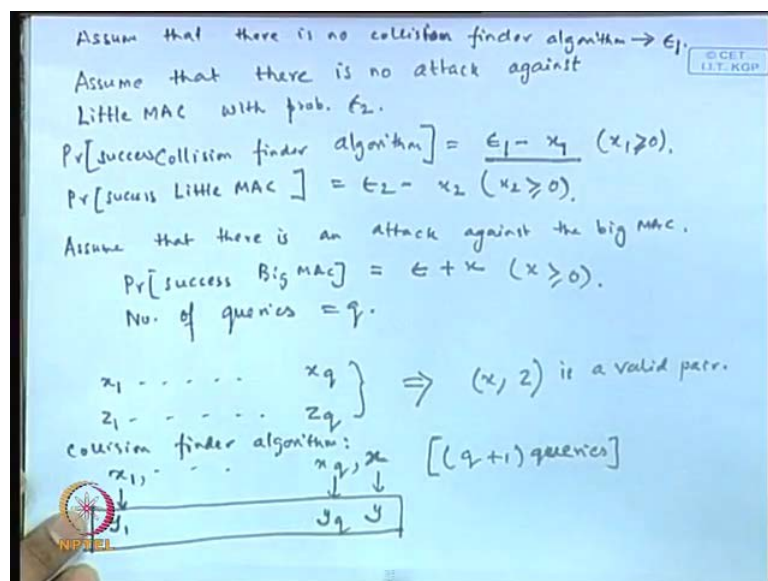 Assum that there is no collision finder algorithm → ϵ1.
© CET
I.I.T. KGP
Assume that there is no attack against
Little MAC with prob. ϵ2.
Pr[success Collision finder algorithm] = ϵ1 - x1 (x1 ≥ 0).
Pr[sucess Little MAC] = ϵ2 - x2 (x2 ≥ 0).
Assume that there is an attack against the big MAC.
Pr[success Big MAC] = ϵ + x (x ≥ 0).
No. of queries = q.
x1 - - - - - xq } ⇒ (x, z) is a valid pair.
z1 - - - - - zq
Collision finder algorithm: [(q+1) queries]
x1, - - - xq, x
↓ ↓ ↓
y1 yq y
NPTEL